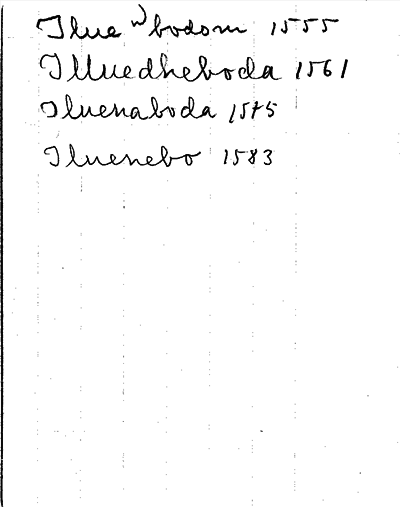 Ilue w bodom 1555
Illuedheboda 1561
Iluenaboda 1575
Iluenebo 1583